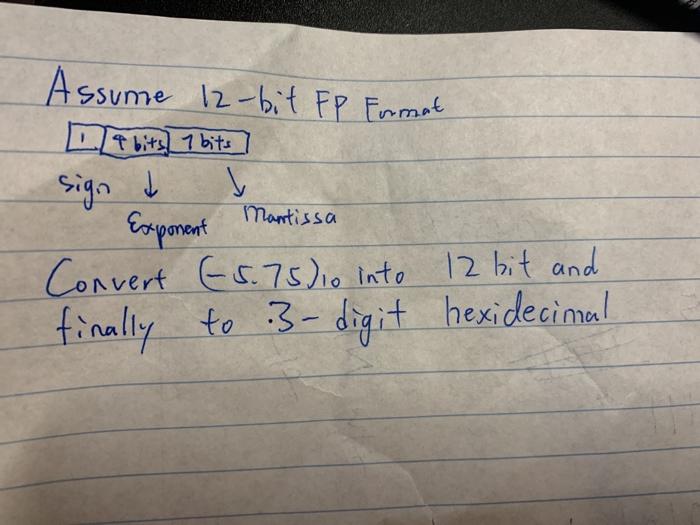 Assume 12-bit FP Format
1 4 bits 7 bits
sign ↓ ↘
Exponent Mantissa
Convert (-5.75)10 into 12 bit and
finally to 3-digit hexidecimal